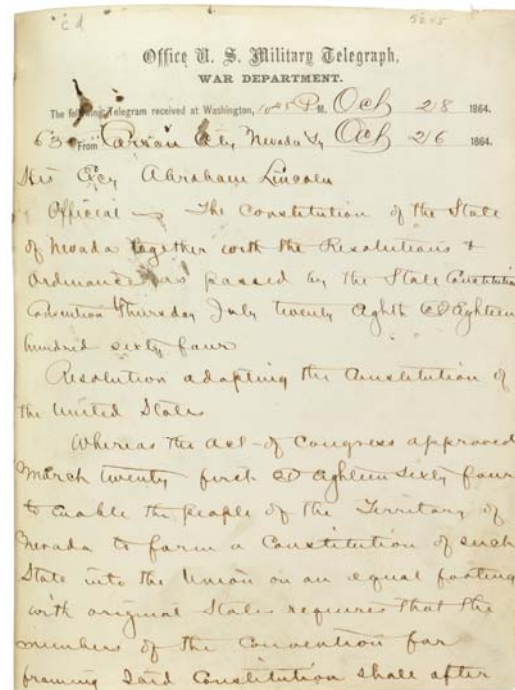 cd
Office U. S. Military Telegraph,
WAR DEPARTMENT.
The following Telegram received at Washington, 1025 P M. Oct 28 1864.
630 From Carson City, Nevada Ty Oct 26 1864.
His Excy Abraham Lincoln
Official — The Constitution of the State
of Nevada together with the Resolutions &
Ordinances as passed by the State Constitution
Convention Thursday July twenty eighth AD Eighteen
hundred sixty four
Resolution adopting the Constitution of
the United States
Whereas the Act of Congress approved
March twenty first AD Eighteen Sixty four
to enable the people of the Territory of
Nevada to form a Constitution of such
State into the Union on an equal footing
with original States requires that the
members of the Convention for
framing Said Constitution shall after